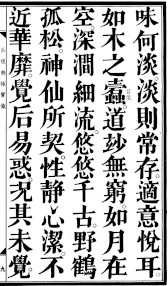 味何淡淡則常存適意悅耳
如木之蠹道玅無窮如月在
空深澗細流悠悠千古野鶴
孤松神仙所契性靜心潔不
近華靡覺后易惑況其未覺
九